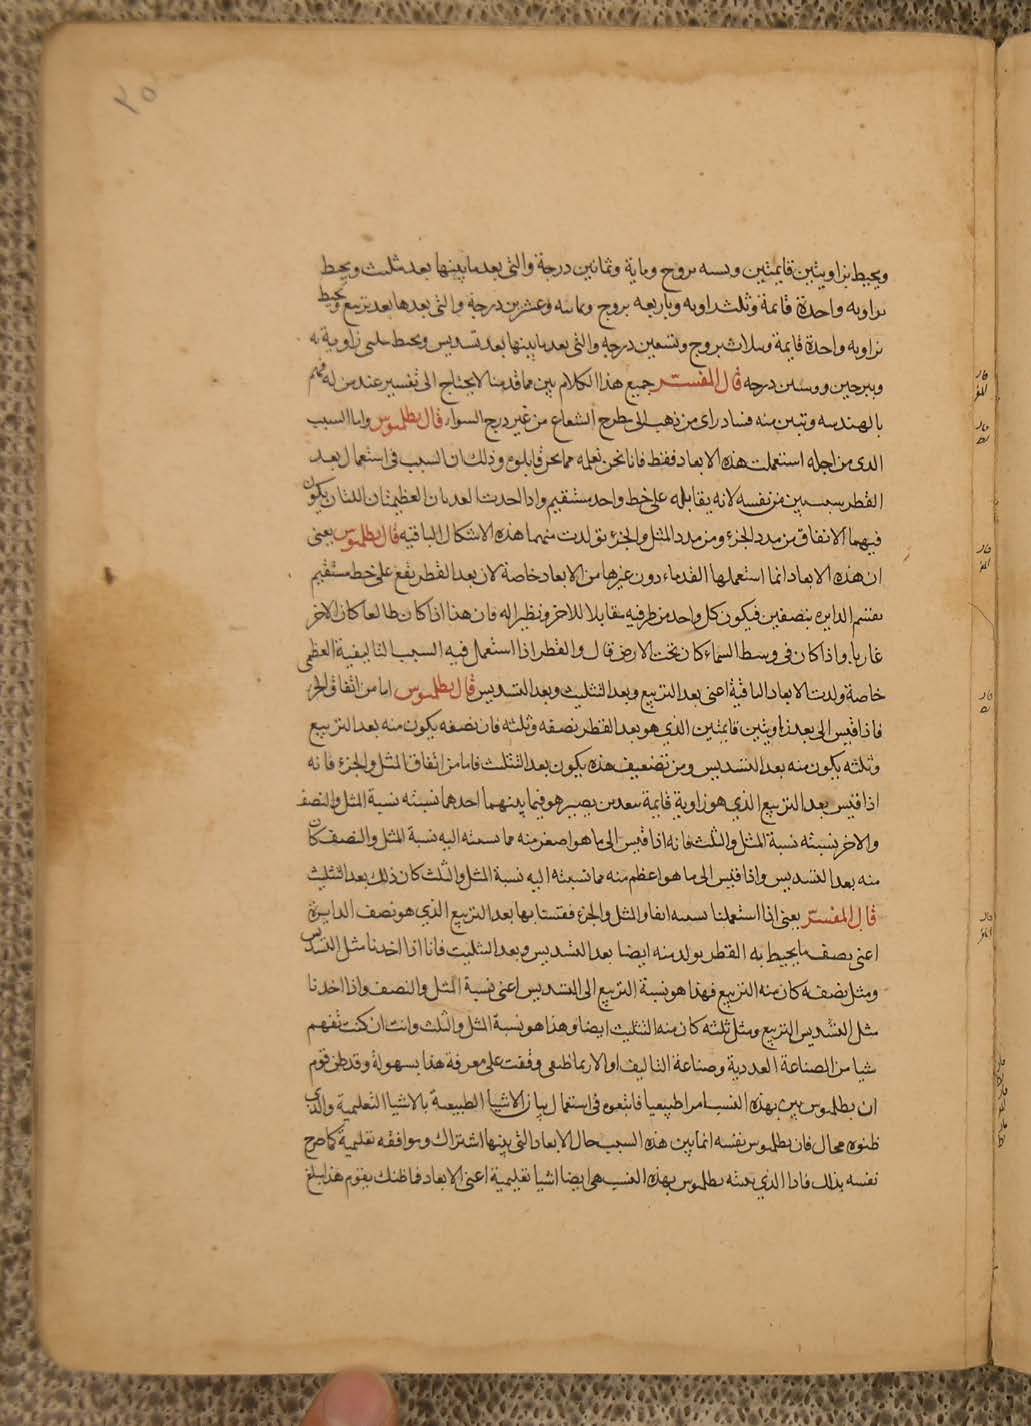 ويحيط بزاويتين قايمتين وبسته بروج وماية وثمانين درجة والتي بعد ما بينها بعد مثلث ويحيط
بزاويه واحدة قائمة وثلث زاويه وباربعه بروج ومائه وعشرين درجة والتي بعدها بعد تربيع ويحيط
بزاويه واحدة قايمة وبثلاث بروج وتسعين درجة والتي بعد ما بينها بعد تسديس ويحيط بثلثى زاوية
وببرجين وبستين درجه قال المفسر جميع هذا الكلام بين مما قدمنا لا يحتاج الى تفسير عند من له فهم
بالهندسه وتبين منه فساد راى من ذهب الى مطرح الشعاع من غير درج السواء قال بطلميوس واما السبب
الذى من اجله استعملت هذه الابعاد فقط فانا نحن نعلمه مما نحن قايلوه وذلك ان السبب فى استعمال بعد
القطر بين من نفسه لانه يقابله على خط واحد مستقيم واذا اخذت العديان العظيمتان اللتان يكون
فيهما الاتفاق من مدد الجزء ومن مدد المثل والجزء تولدت منهما هذه الاشكال الباقيه قال بطلميوس يعنى
ان هذه الابعاد انما استعملها القدماء دون غيرها من الابعاد خاصة لان بعد القطر يقع على خط مستقيم
يقسم الدايره بنصفين فيكون كل واحد من طرفيه مقابلا للاخر ونظيرا له فان هذا اذا كان طالعا كان الاخر
غاربا واذا كان فى وسط السماء كان تحت الارض قال والقطر اذا استعمل فيه السبب التاليفية العظمى
خاصة ولدت الابعاد الباقية اعنى بعد التربيع وبعد التثليث وبعد التسديس قال بطلميوس اما من اتفاق الجزء
فاذا قيس الى بعد زاويتين قايمتين الذي هو بعد القطر نصفه وثلثه فان نصفه يكون منه بعد التربيع
وثلثه يكون منه بعد التسديس ومن تضعيف هذه يكون بعد التثليث فاما من اتفاق المثل والجزء فانه
اذا قيس بعد التربيع الذي هو زاوية قايمة ببعدين يصير هو فيما بينهما احدهما نسبته نسبة المثل والنصف
والاخر نسبته نسبة المثل والثلث فانه اذا قيس الى ما هو اصغر منه مما نسبته اليه نسبة المثل والنصف كان
منه بعد التسديس واذا قيس الى ما هو اعظم منه مما نسبته اليه نسبة المثل والثلث كان ذلك بعد التثليث
قال المفسر يعنى اذا استعملنا نسبه اتفاق المثل والجزء فقسنا بها بعد التربيع الذي هو نصف الدايرة
اعنى نصف ما يحيط به القطر تولد منه ايضا بعد التسديس وبعد التثليث فانا اذا اخذنا مثل التسديس
ومثل نصفه كان منه التربيع فهذا هو نسبة التربيع الى التسديس اعنى نسبة المثل والنصف واذا اخذنا
مثل التسديس التربيع ومثل ثلثه كان منه التثليث ايضا وهذا هو نسبة المثل والثلث وانت ان كنت تفهم
شيا من الصناعة العددية وصناعة التاليف او الارثماطيقى وقفت على معرفة هذا بسهولة وقد ظن قوم
ان بطلميوس بين بهذه النسب امرا طبيعيا فاتبعوه فى استعمال بيان الاشيا الطبيعية بالاشيا التعليمية والذي
ظنوه محال فان بطلميوس نفسه انما بين هذه النسب حال الابعاد التي بينها اشتراك وموافقه تعليمية كما صرح
نفسه بذلك فاذا الذي بينه بطلميوس بهذه النسب هى ايضا اشيا تعليمية اعنى الابعاد فاظنك بقوم هذا مبلغ